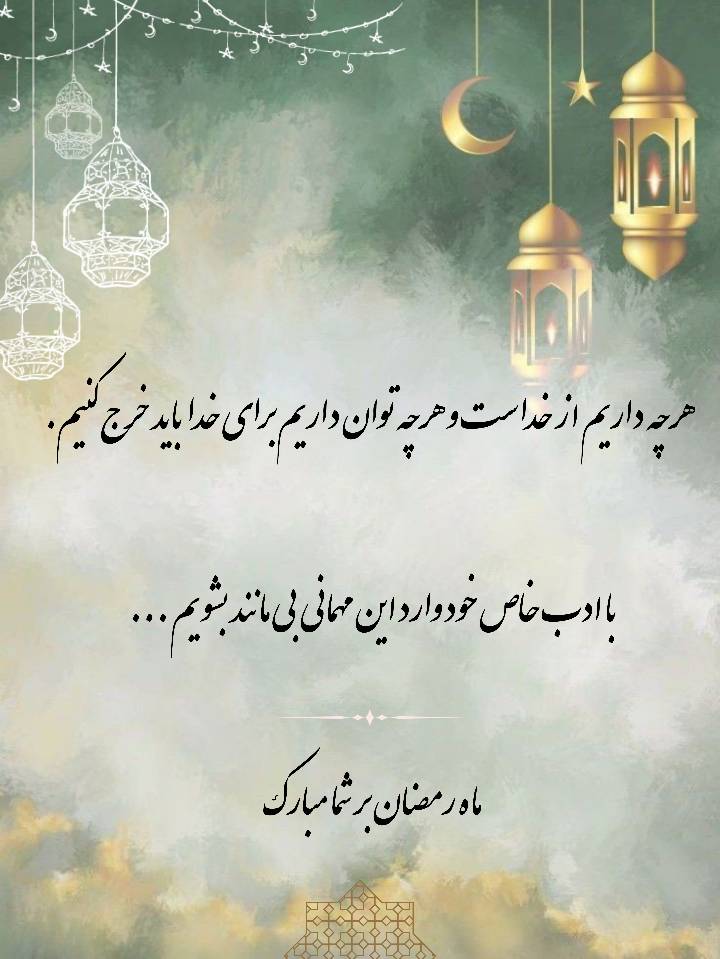 هرچه داریم از خداست و هرچه توان داریم برای خدا باید خرج کنیم.
با ادب خاص خود وارد این مهمانی بی مانند بشویم ...
ماه رمضان بر شما مبارک